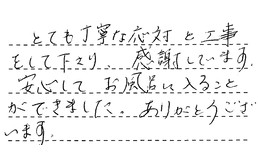 とても丁寧な応対と工事
をして下さり、感謝しています。
安心して お風呂に入ること
ができました。ありがとうござ
います。